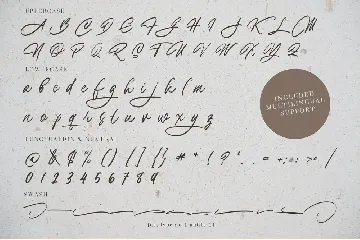 UPPERCASE
A B C D E F G H I J K L M
N O P Q R S T U V W X Y Z
LOWERCASE
a b c d e f g h i j k l m
n o p q r s t u v w x y z
INCLUDED
MULTILINGUAL
SUPPORT
PUNCTUATION &
@ & $ % ( ) [ ] { } * + ! ? '
0 1 2 3 4 5 6 7 8 9
SWASH